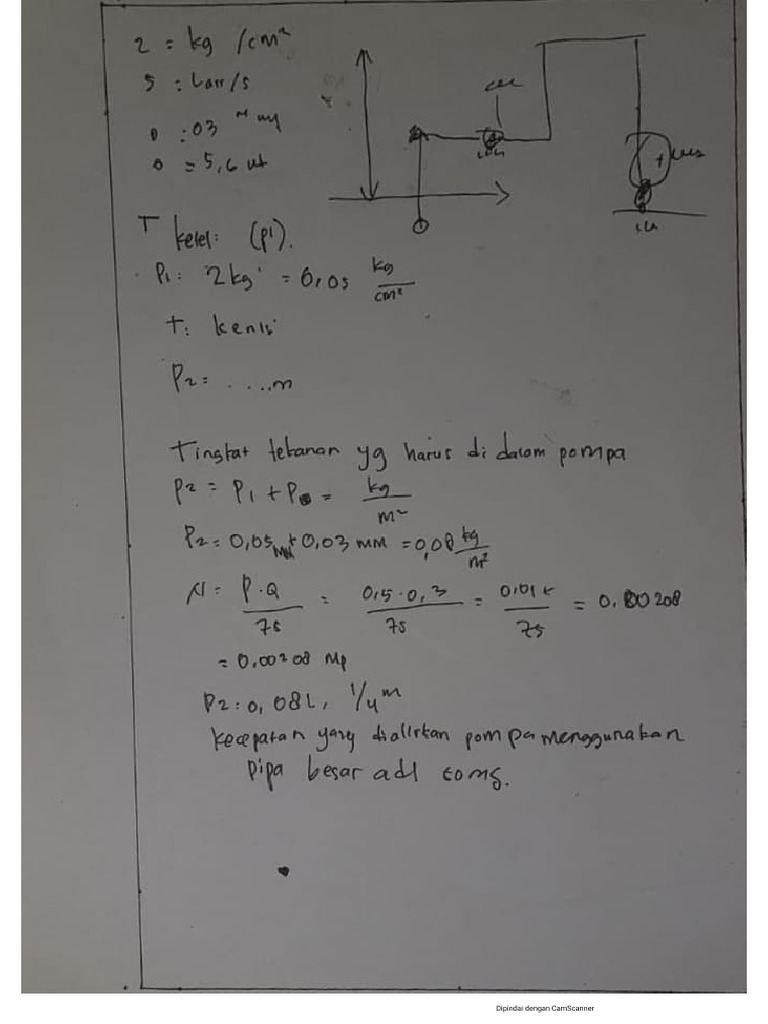 2 = kg /cm²
5 : Larr/s
0 : 03
0 = 5,6
T kelel: (P¹).
P1: 2kg = 0,05 kg/cm²
T: kenis
P2 = .....m
Tingkat tekanan yg harus di dalam pompa
P2 = P1 + P = kg/m²
P2 = 0,05 MM + 0,03 MM = 0,08 kg/m²
N = P.Q/75 = 0,5.0,3/75 = 0,015/75 = 0.00208
= 0,00208 Mp
P2: 0,08L, 1/4 m
Kecepatan yang dialirkan pompa menggunakan
pipa besar adl
Dipindai dengan CamScanner